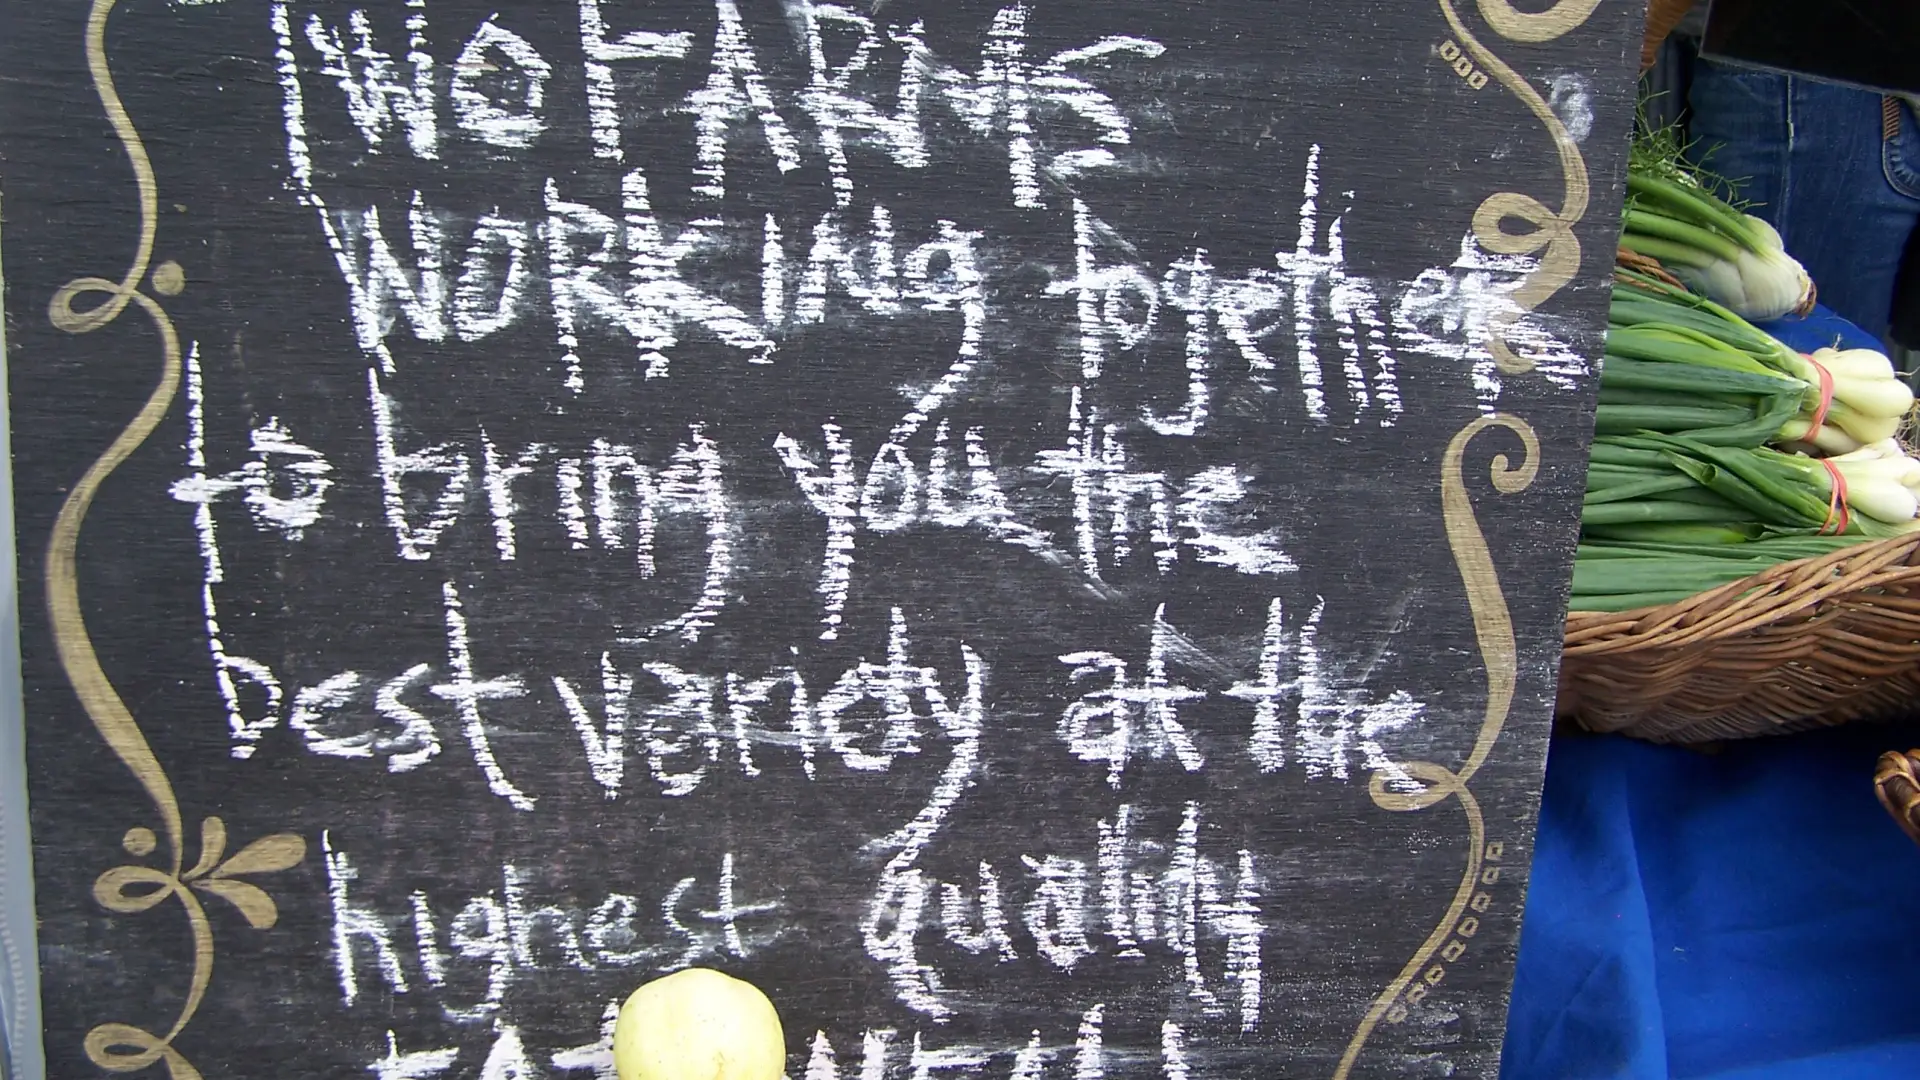 TWO FARMS
WORKING together
to bring you the
best variety at the
highest quality
EAT WELL!